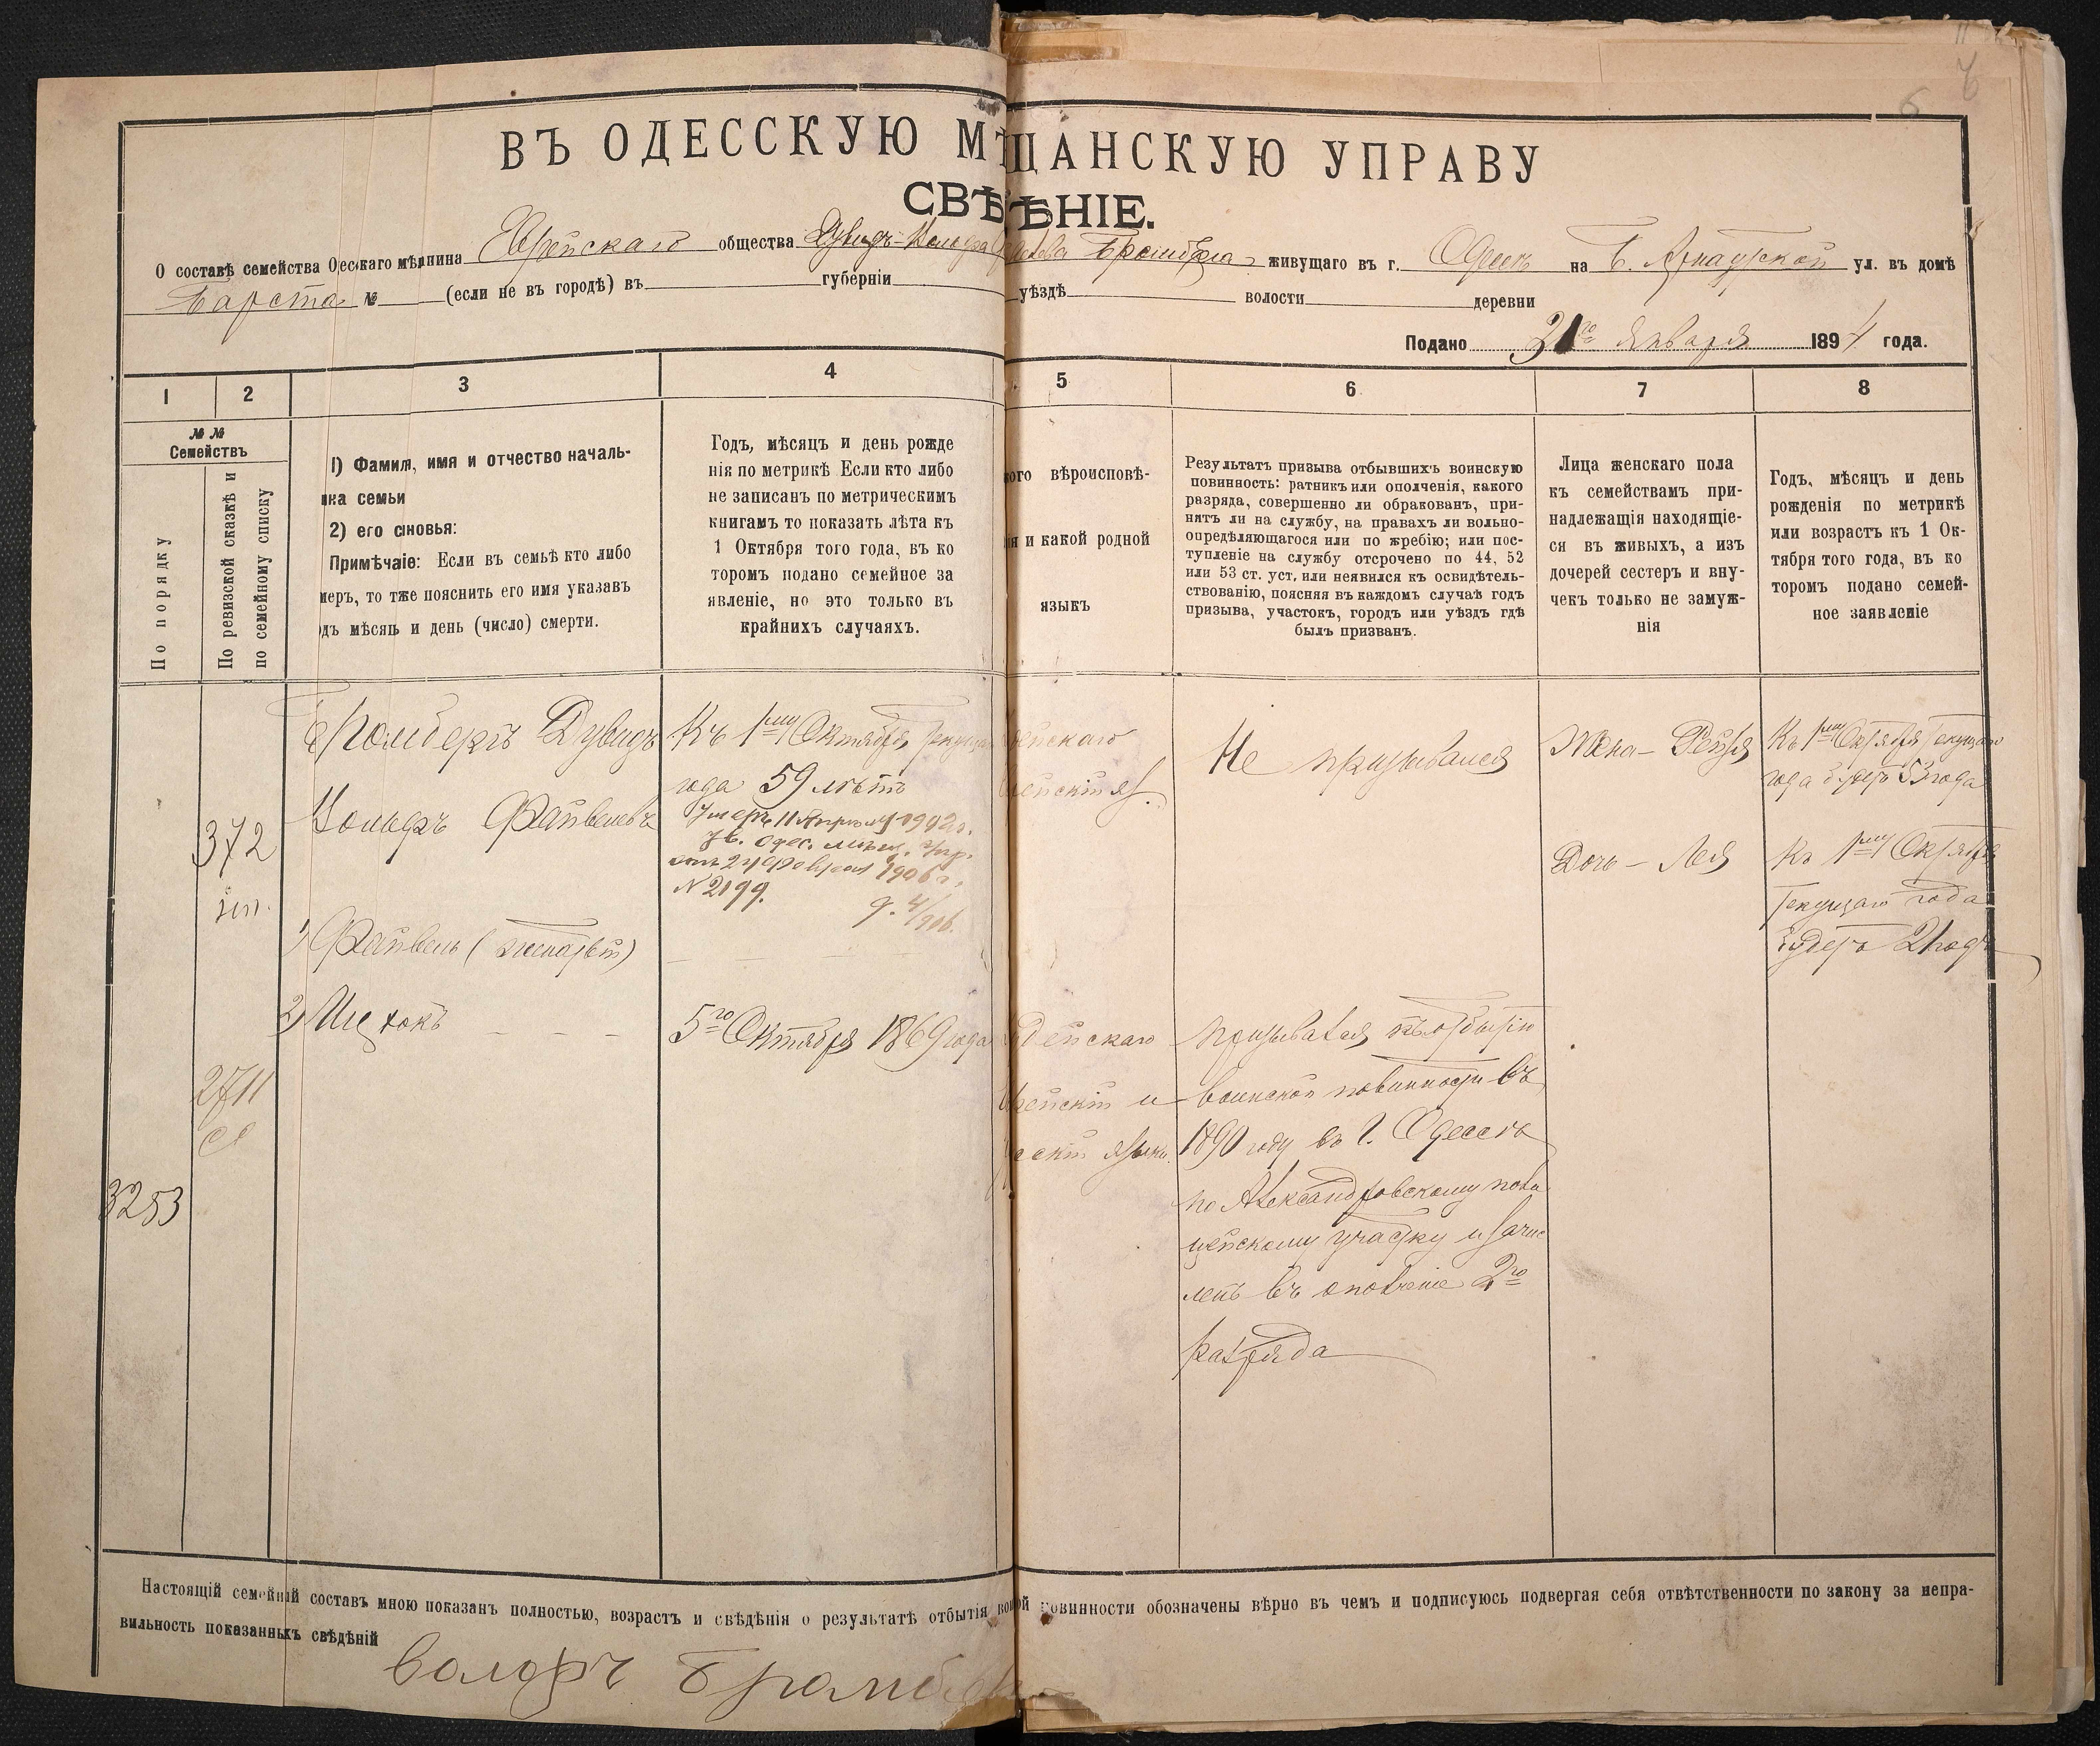 ВЪ ОДЕССКУЮ МѢЩАНСКУЮ УПРАВУ
СВѢ ѢНІЕ.
О составѣ семейства О есскаго мѣщнина Еврейскаго общества Дувидъ-Вольфа Бромберга живущаго въ г. Одессѣ на Б. Арнаутской ул. въ домѣ
Барета № (если не въ городѣ) въ губерніи уѣздѣ волости деревни
Подано 21го Января 1894 года.
1 2 3 4 5 6 7 8
№ № Семействъ
По порядку
По ревизской сказкѣ и по семейному списку
1) Фамиля, имя и отчество началь-
ика семьи
2) его сыновья:
Примѣчаіе: Если въ семьѣ кто либо
меръ, то тже пояснить его имя указавъ
дъ мѣсяць и день (число) смерти.
Годъ, мѣсяцъ и день рожде
нія по метрикѣ Если кто либо
не записанъ по метрическимъ
книгамъ то показать лѣта къ
1 Октября того года, въ ко
торомъ подано семейное за
явленіе, но это только въ
крайнихъ случаяхъ.
ого вѣроисповѣ-
ія и какой родной
языкъ
Результатъ призыва отбывшихъ воинскую
повинность: ратникъ или ополченія, какого
разряда, совершенно ли обракованъ, при-
нятъ ли на службу, на правахъ ли вольно-
опредѣляющагося или по жребію; или пос-
тупленіе на службу отсрочено по 44, 52
или 53 ст. уст, или неявился къ освидѣтель-
ствованію, поясняя въ каждомъ случаѣ годъ
призыва, участокъ, городъ или уѣздъ гдѣ
былъ призванъ.
Лица женскаго пола
къ семействамъ при-
надлежащія находящіе-
ся въ живыхъ, а изъ
дочерей сестеръ и вну-
чекъ только не замуж-
нія
Годъ, мѣсяцъ и день
рожденія по метрикѣ
или возрастъ къ 1 Ок-
тября того года, въ ко
торомъ подано семей-
ное заявленіе
3253
372
2711
Бромбергъ Дувидъ
Вольфъ Файвелевъ
1) Файвель (
2) Ицхокъ
Къ 1му Октября текущаго
года 59 лѣтъ
Умеръ 11 Апрѣля 1902 г.
Ув. Одес. мѣщ. Упр.
отъ 24 Февраля 1906 г.
N 2199.
4/906.
5го Октября 1869 года
ейскаго
ейскій яз.
удейскаго
врейскій и
усскій языки
Не призывался
призывался къ отбытію
воинской повинности въ
1890 году въ г. Одессѣ
по Александровскому поли
цейскому участку и зачис
ленъ въ ополченіе 2го
разряда
Жена - Рейзя
Дочь - Лея
Къ 1му Октября текущаго
года будетъ 53 года
Къ 1му Октября
текущаго года
будетъ 21 годъ
Настоящій семейній составъ мною показанъ полностью, возрастъ и свѣдѣнія о результатѣ отбытія воиной повинности обозначены вѣрно въ чемъ и подписуюсь подвергая себя отвѣтственности по закону за непра-
вильность показанныхъ свѣдѣній
Волфъ Бромберг